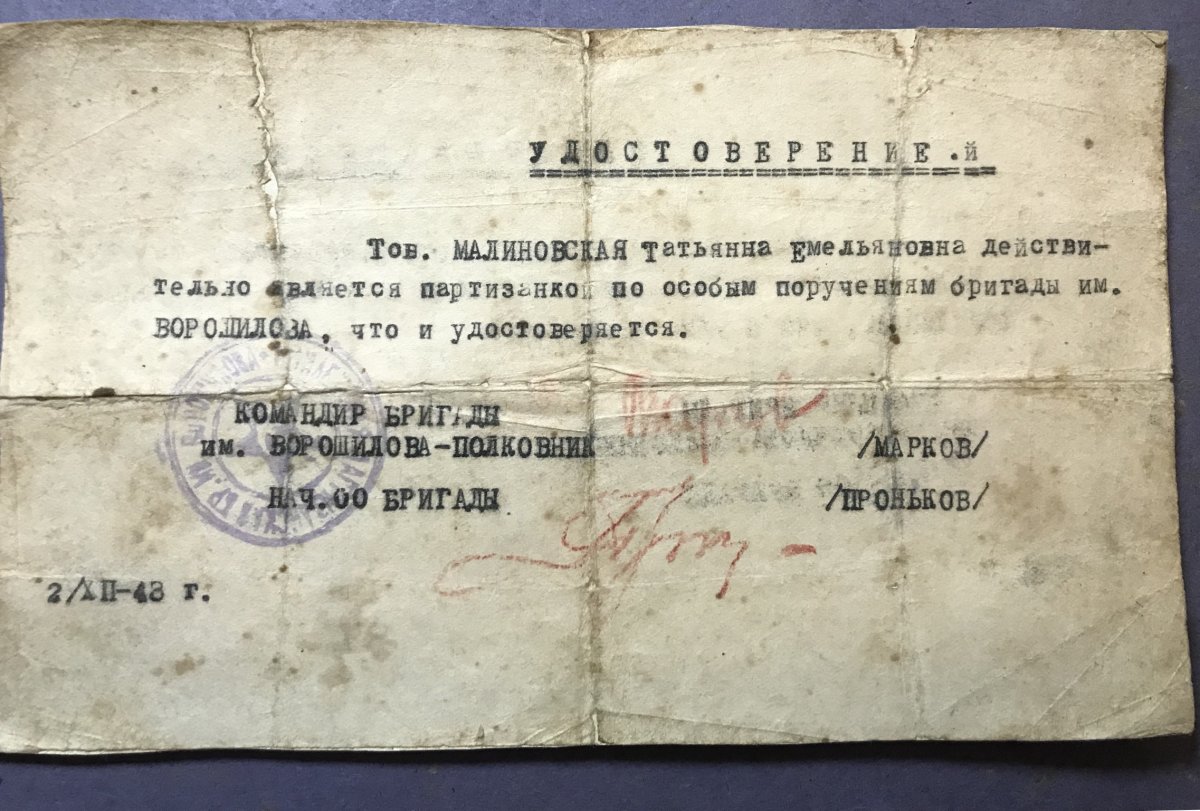 УДОСТОВЕРЕНИЕ.й
Тов. МАЛИНОВСКАЯ Татьянна Емельяновна действи-
тельно является партизанкой по особым поручениям бригады им.
ВОРОШИЛОВА, что и удостоверяется.
КОМАНДИР БРИГАДЫ
им. ВОРОШИЛОВА-ПОЛКОВНИК /МАРКОВ/
НАЧ.ОО БРИГАДЫ /ПРОНЬКОВ/
2/XII-43 г.